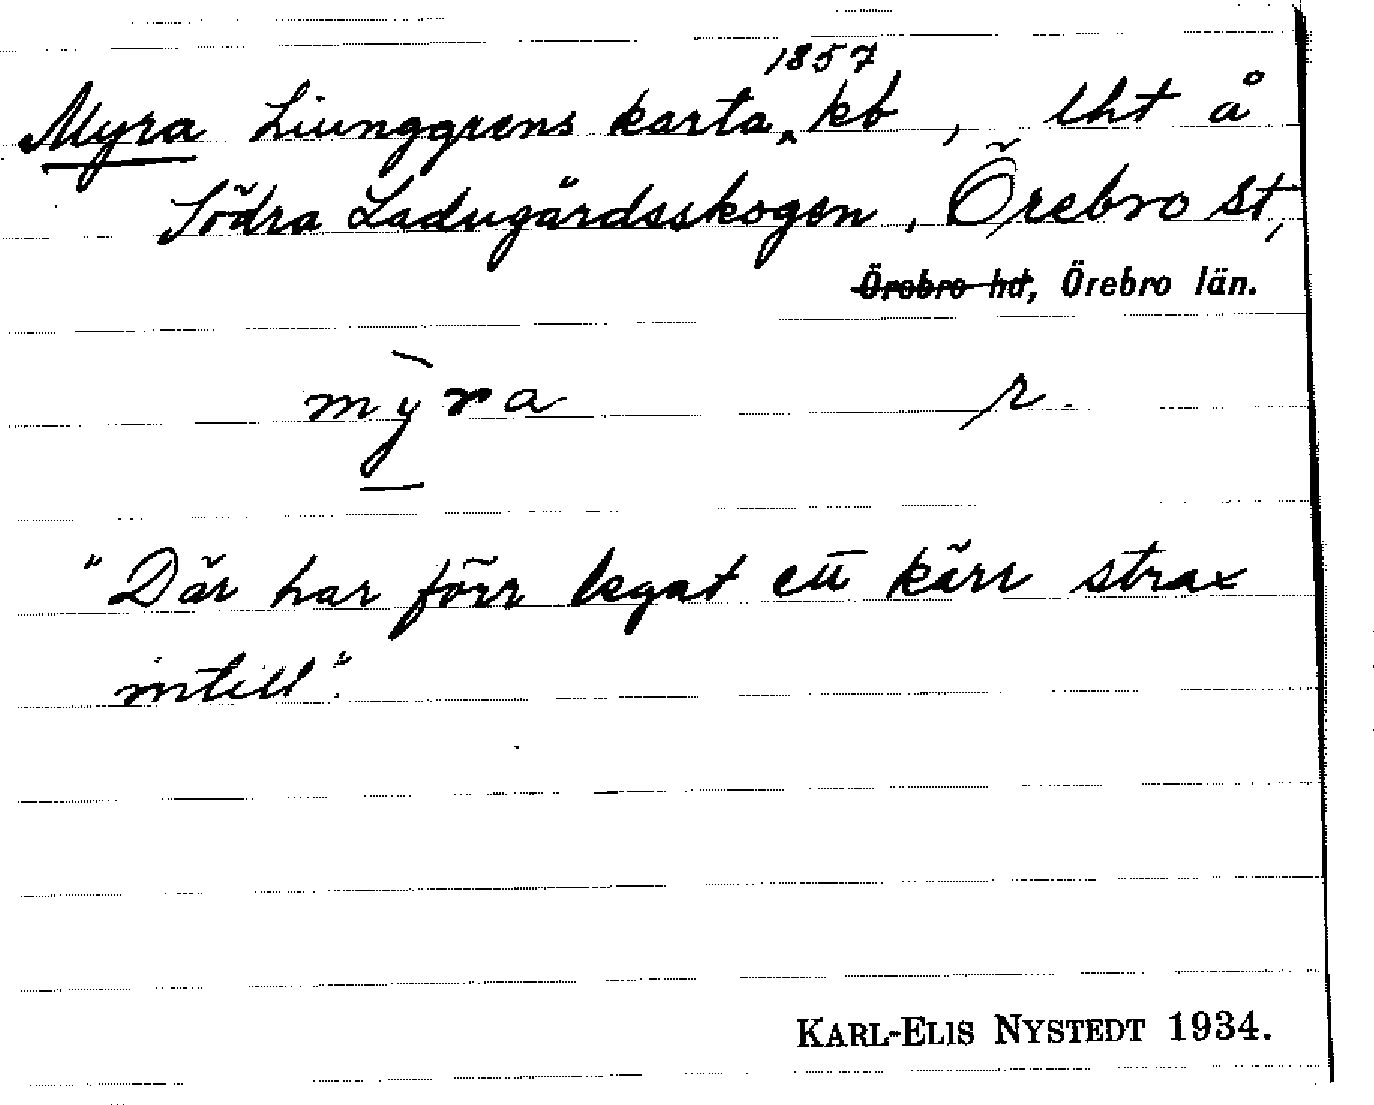 Myra Liunggrens karta 1857 kb, lht å
Södra Ladugårdsskogen, Örebro st,
Örebro hd, Örebro län.
mỳra r.
"Där har förr legat ett kärr strax
intill".
KARL-ELIS NYSTEDT 1934.